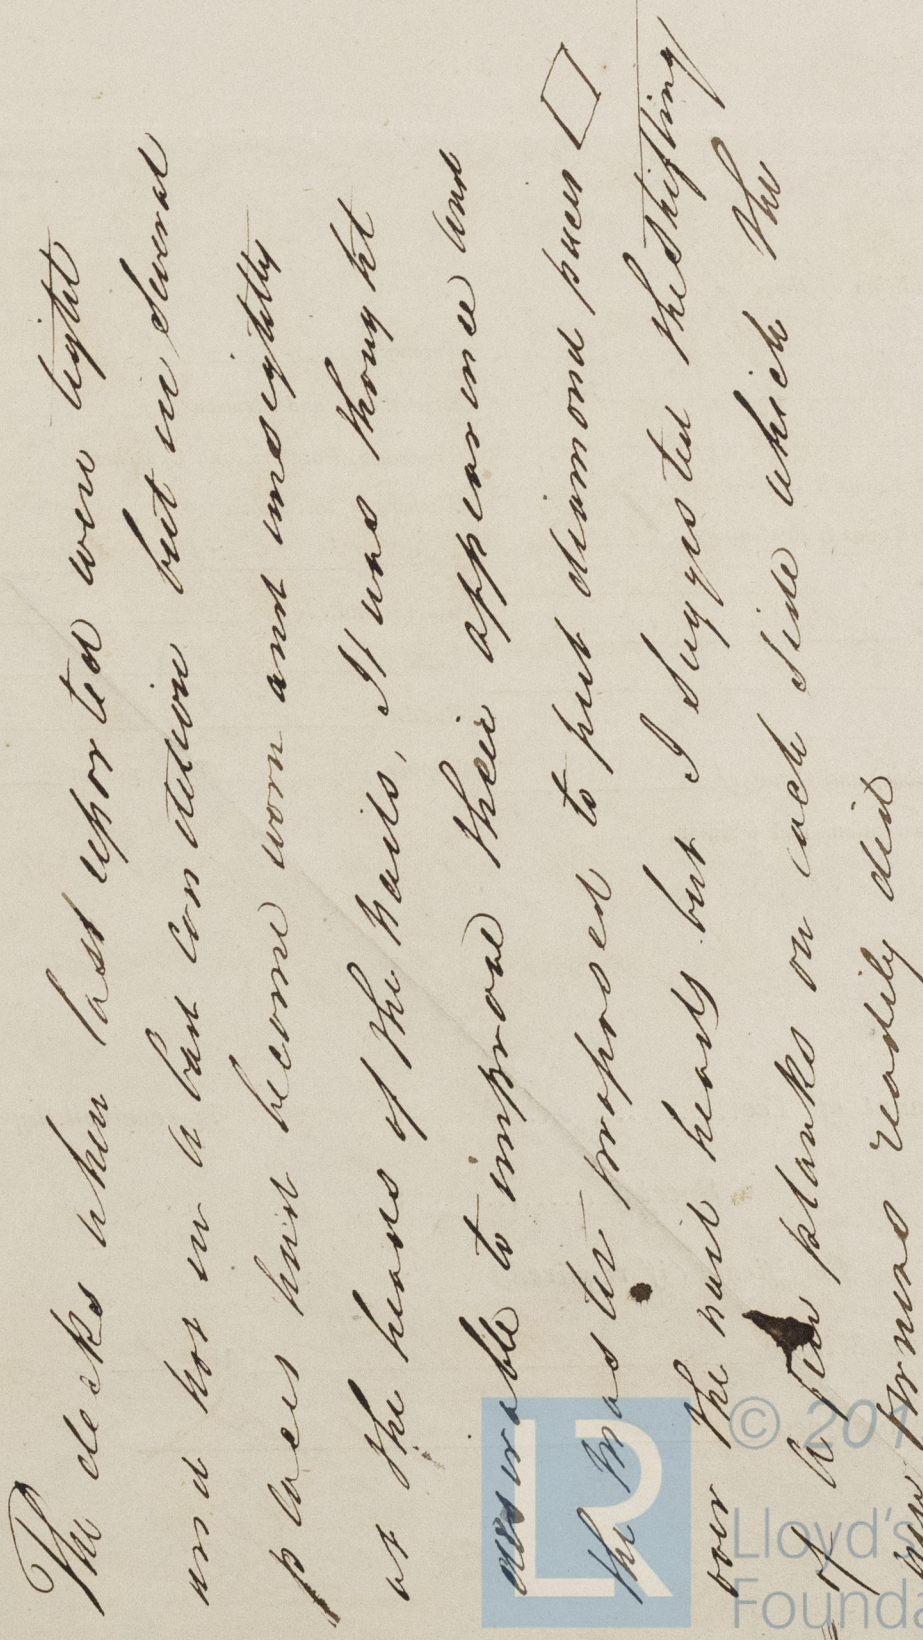 The decks when last reported were tight
and not in a bad condition but in several
places had become worn and unsightly
at the heads of the nails, It was thought
desirable to improve their appearance and
the Master proposed to put diamond pieces
over the nail heads but I suggested the shifting
of a few planks on each side which the
readily did
LR
© 201
Lloyd's
Founda